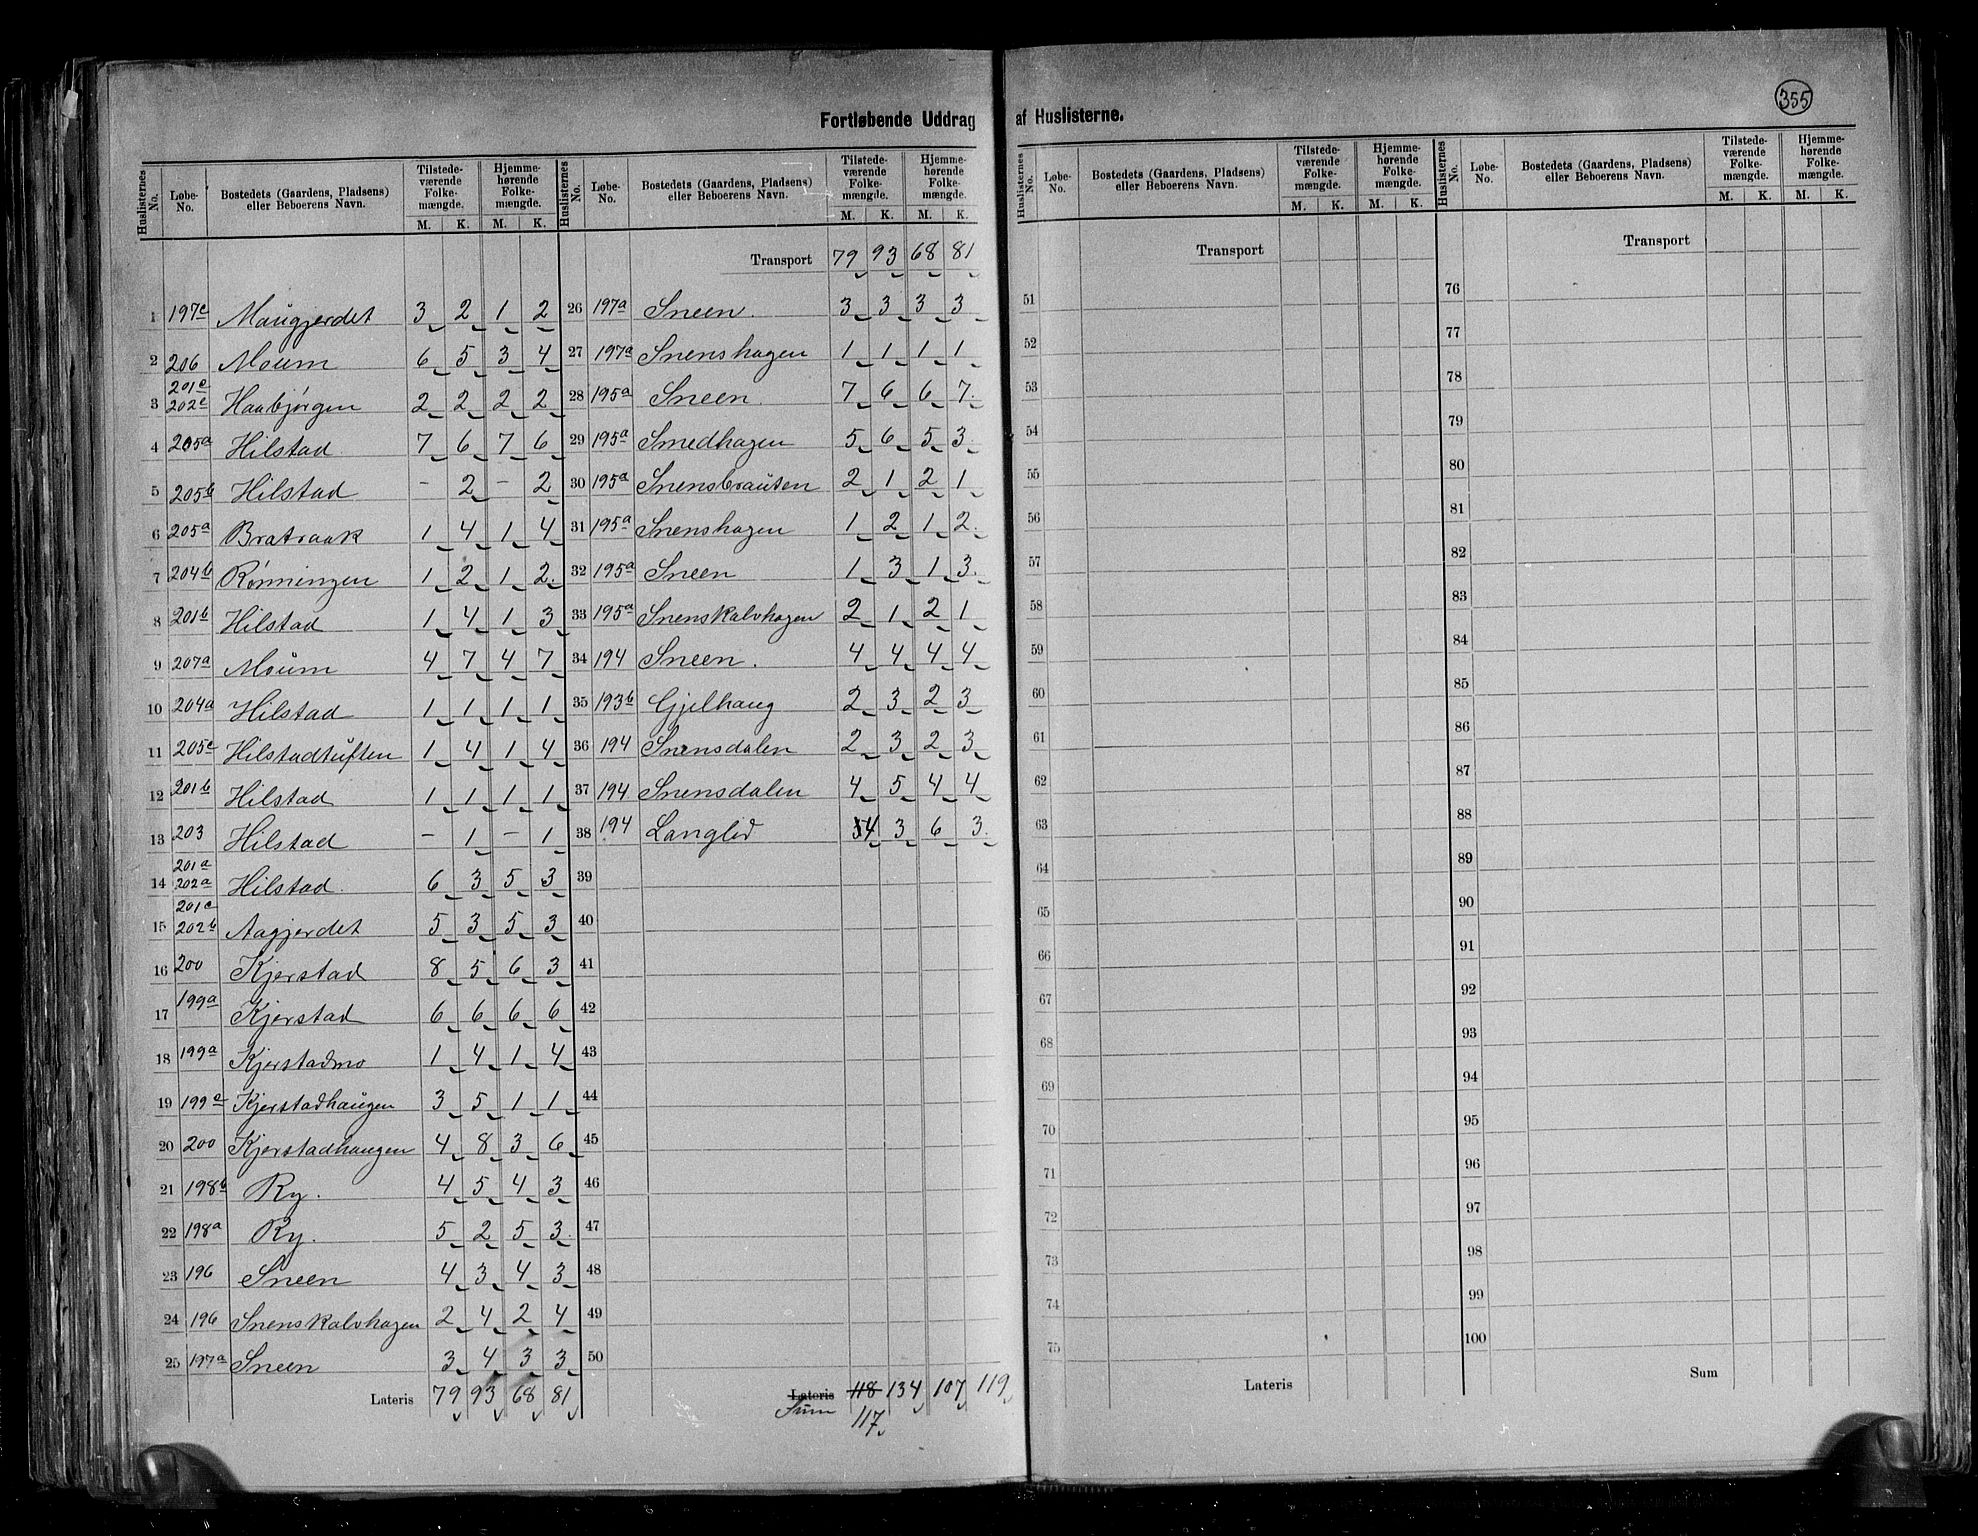 355
Fortløbende Uddrag af Huslisterne.
Huslisternes No. | Løbe-No. | Bostedets (Gaardens, Pladsens) eller Beboerens Navn. | Tilstedeværende Folkemængde. M. K. | Hjemmehørende Folkemængde. M. K.
1 197c Maugjerdet 3 2 1 2
2 206 Moum 6 5 3 4
3 201c 202c Haabjørgen 2 2 2 2
4 205a Hilstad 7 6 7 6
5 205b Hilstad - 2 - 2
6 205a Bratraak 1 4 1 4
7 204b Rønningen 1 2 1 2
8 201b Hilstad 1 4 1 3
9 207a Moum 4 7 4 7
10 204a Hilstad 1 1 1 1
11 205c Hilstadtuften 1 4 1 4
12 201b Hilstad 1 1 1 1
13 203 Hilstad - 1 - 1
14 201a 202a Hilstad 6 3 5 3
15 201c 202b Aagjerdet 5 3 5 3
16 200 Kjerstad 8 5 6 3
17 199a Kjerstad 6 6 6 6
18 199a Kjerstadmo 1 4 1 4
19 199c Kjerstadhaugen 3 5 1 1
20 200 Kjerstadhaugen 4 8 3 6
21 198b Ry. 4 5 4 3
22 198a Ry. 5 2 5 3
23 196 Sneen 4 3 4 3
24 196 Snenskalvhagen 2 4 2 4
25 197a Sneen 3 4 3 3
Lateris 79 93 68 81
Huslisternes No. | Løbe-No. | Bostedets (Gaardens, Pladsens) eller Beboerens Navn. | Tilstedeværende Folkemængde. M. K. | Hjemmehørende Folkemængde. M. K.
Transport 79 93 68 81
26 197a Sneen. 3 3 3 3
27 197a Snenshagen 1 1 1 1
28 195a Sneen. 7 6 6 7
29 195a Smedhagen 5 6 5 3
30 195a Snensbrauten 2 1 2 1
31 195a Snenshagen 1 2 1 2
32 195a Sneen 1 3 1 3
33 195a Snenskalvhagen 2 1 2 1
34 194 Sneen. 4 4 4 4
35 193b Gjelhaug 2 3 2 3
36 194 Snensdalen 2 3 2 3
37 194 Snensdalen 4 5 4 4
38 194 Langlid 4 3 6 3
39
40
41
42
43
44
45
46
47
48
49
50
Lateris 118 134 107 119
Sum 117
Huslisternes No. | Løbe-No. | Bostedets (Gaardens, Pladsens) eller Beboerens Navn. | Tilstedeværende Folkemængde. M. K. | Hjemmehørende Folkemængde. M. K.
Transport
51
52
53
54
55
56
57
58
59
60
61
62
63
64
65
66
67
68
69
70
71
72
73
74
75
Lateris
Huslisternes No. | Løbe-No. | Bostedets (Gaardens, Pladsens) eller Beboerens Navn. | Tilstedeværende Folkemængde. M. K. | Hjemmehørende Folkemængde. M. K.
Transport
76
77
78
79
80
81
82
83
84
85
86
87
88
89
90
91
92
93
94
95
96
97
98
99
100
Sum